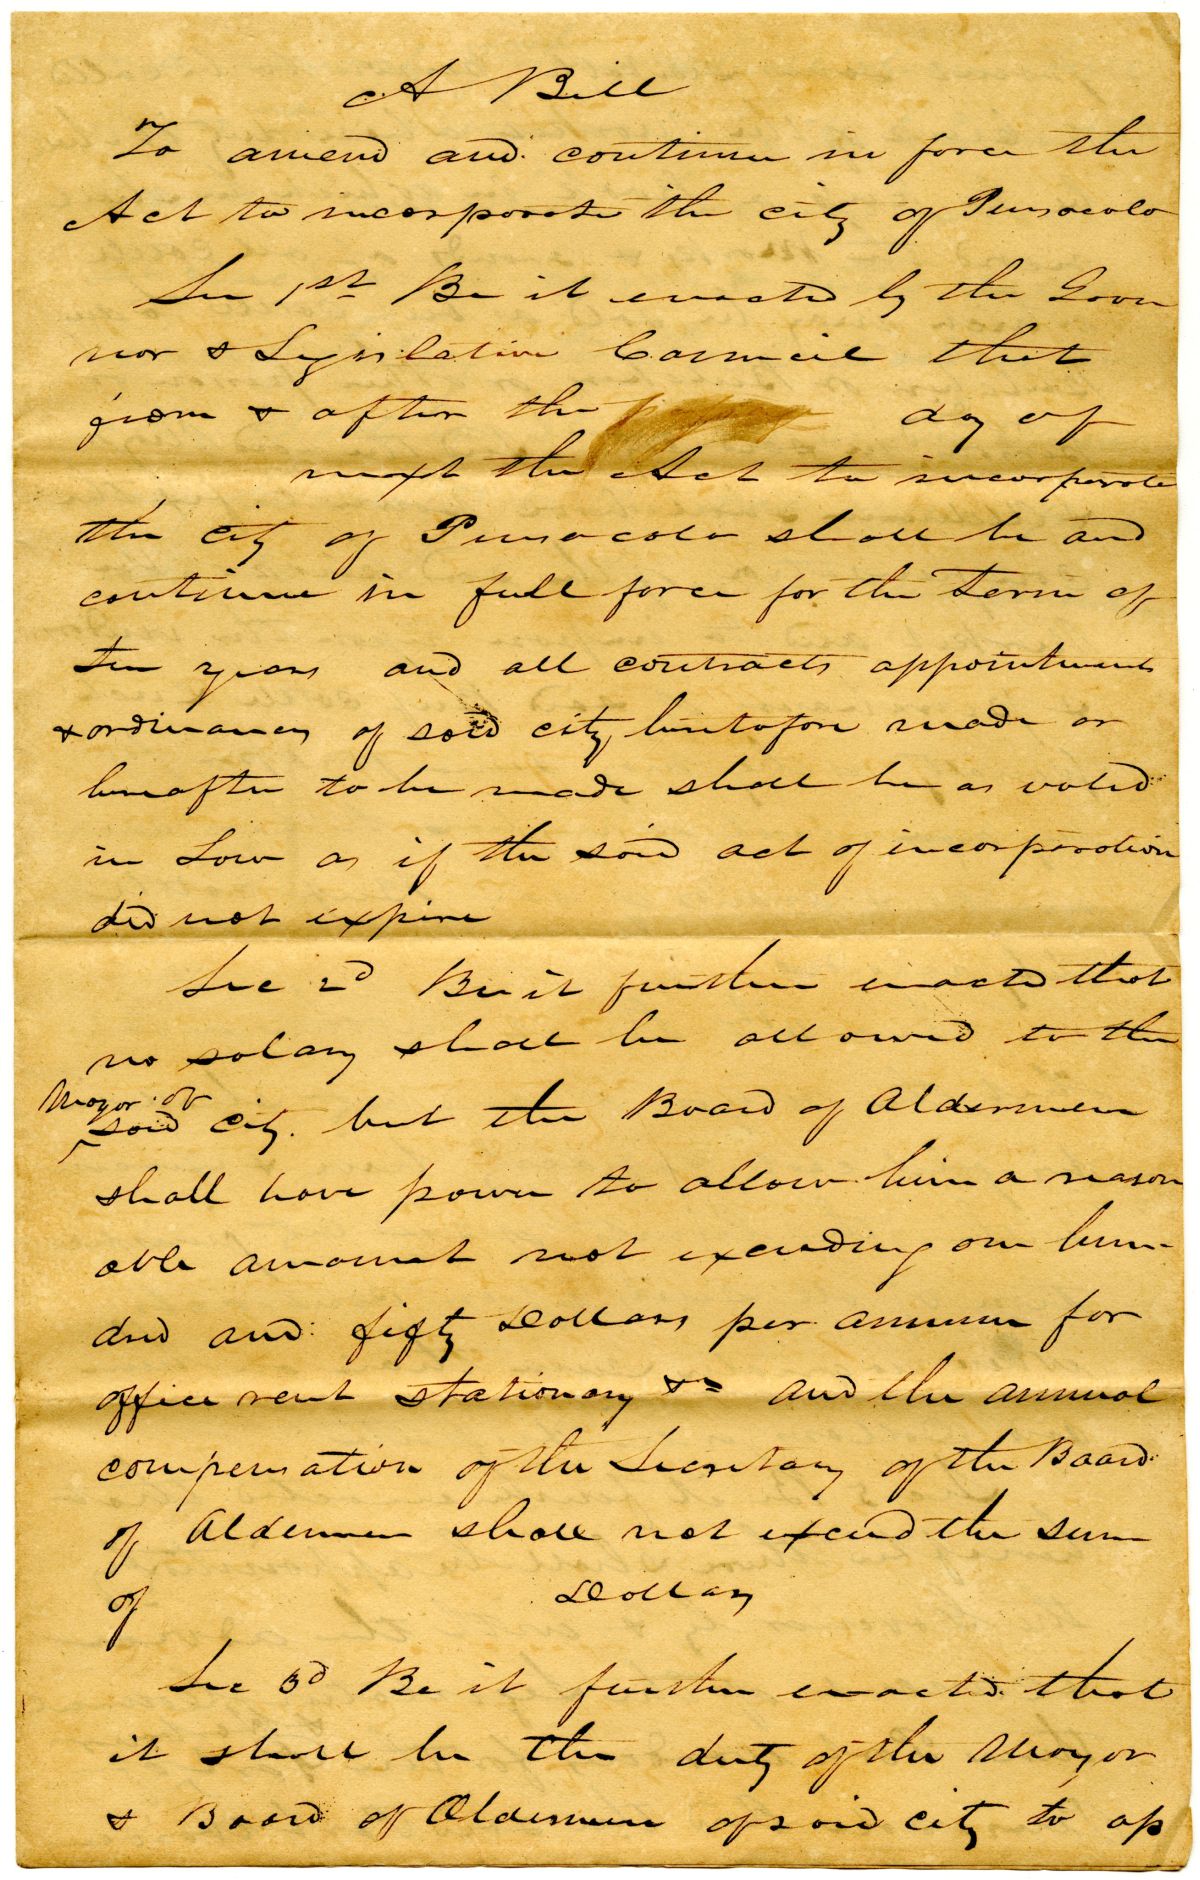 A Bill
To amend and continue in force the
Act to incorporate the city of Pensacola
Sec 1st Be it enacted by the Gover
nor & Legislative Council that
from & after the day of
next the Act to incorporate
the city of Pensacola shall be and
continue in full force for the term of
ten years and all contracts appointments
& ordinances of said city heretofore made or
hereafter to be made shall be as valid
in Law as if the said act of incorporation
did not expire
Sec 2d Be it further enacted that
no salary shall be allowed to the
Mayor of
said city. but the Board of Aldermen
shall have power to allow him a reason
able amount not exceeding one hun-
dred and fifty Dollars per annum for
office rent stationary &c and the annual
compensation of the Secretary of the Board
of Aldermen shall not exceed the sum
of Dollars
Sec 3d Be it further enacted that
it shall be the duty of the Mayor
& Board of Aldermen of said city to ap